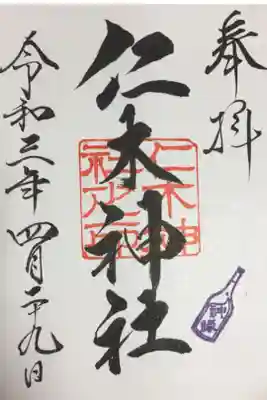 奉拝
仁木神社
仁木神
社之印
神酒
令和三年四月二十九日